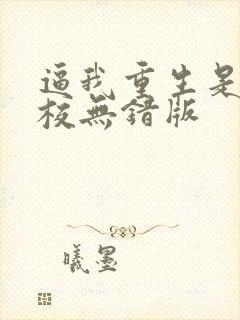 逼我重生是
校無錯版
曦墨